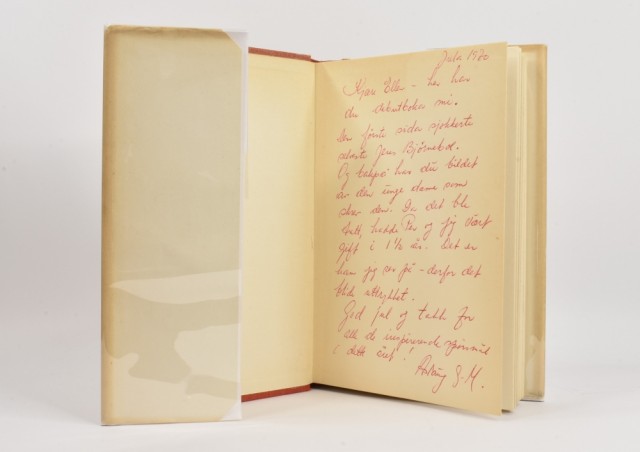 Jula 1970
Kjære Ellen - her har
du debutboka mi.
Den første sida sjokkerte
selveste Jens Bjørneboe.
Og bakpå har du bildet
av den unge dama som
skrev den. Da det ble
tatt, hadde Per og jeg vært
gift i 1½ år. Det er
ham jeg ser på - derfor det
blide uttrykket.
God jul og takk for
alle de inspirerende spørsmål
i dette året!
G. M.